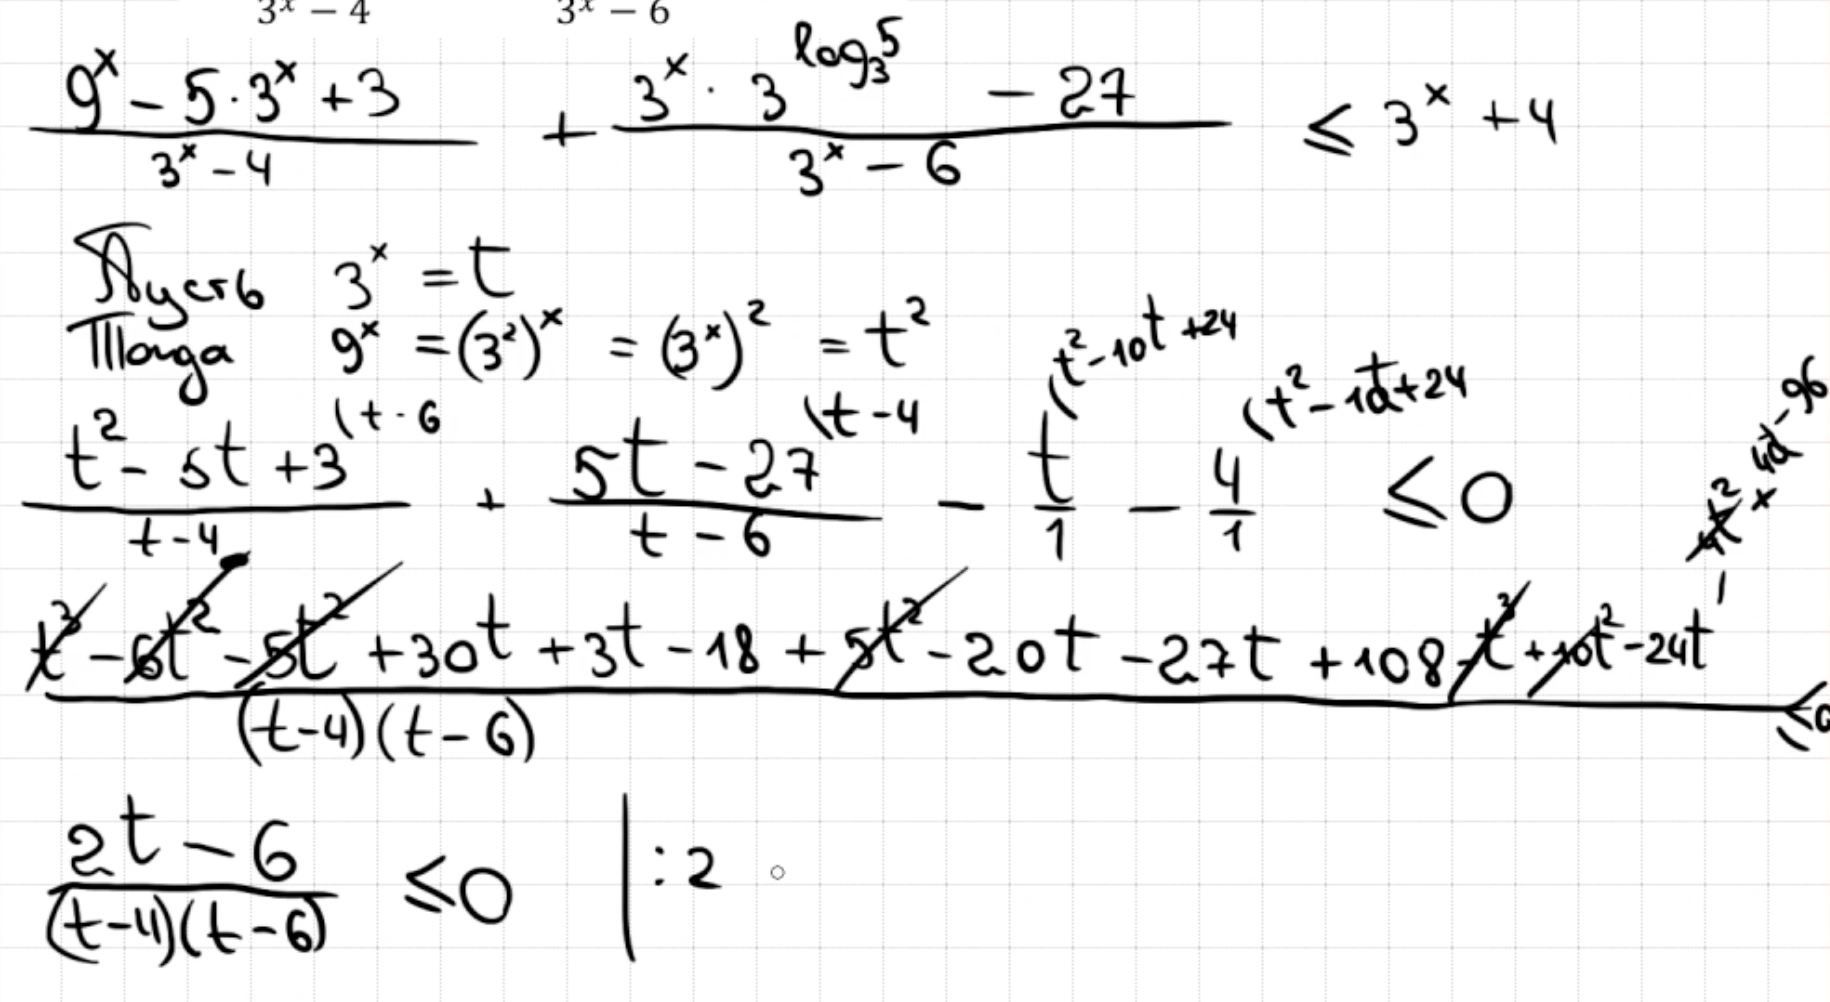 3ˣ − 4 3ˣ − 6
(9ˣ − 5·3ˣ + 3)/(3ˣ − 4) + (3ˣ · 3^(log₃5) − 27)/(3ˣ − 6) ≤ 3ˣ + 4
Пусть 3ˣ = t
Тогда 9ˣ = (3²)ˣ = (3ˣ)² = t²
(t² − 5t + 3)/(t − 4) (t − 6 + (5t − 27)/(t − 6) (t − 4 − t/1 (t² − 10t + 24 − 4/1 (t² − 10t + 24 ≤ 0
(t³ − 6t² − 5t² + 30t + 3t − 18 + 5t² − 20t − 27t + 108 − t³ + 10t² − 24t)/((t − 4)(t − 6)) ≤ 0
(2t − 6)/((t − 4)(t − 6)) ≤ 0 | : 2